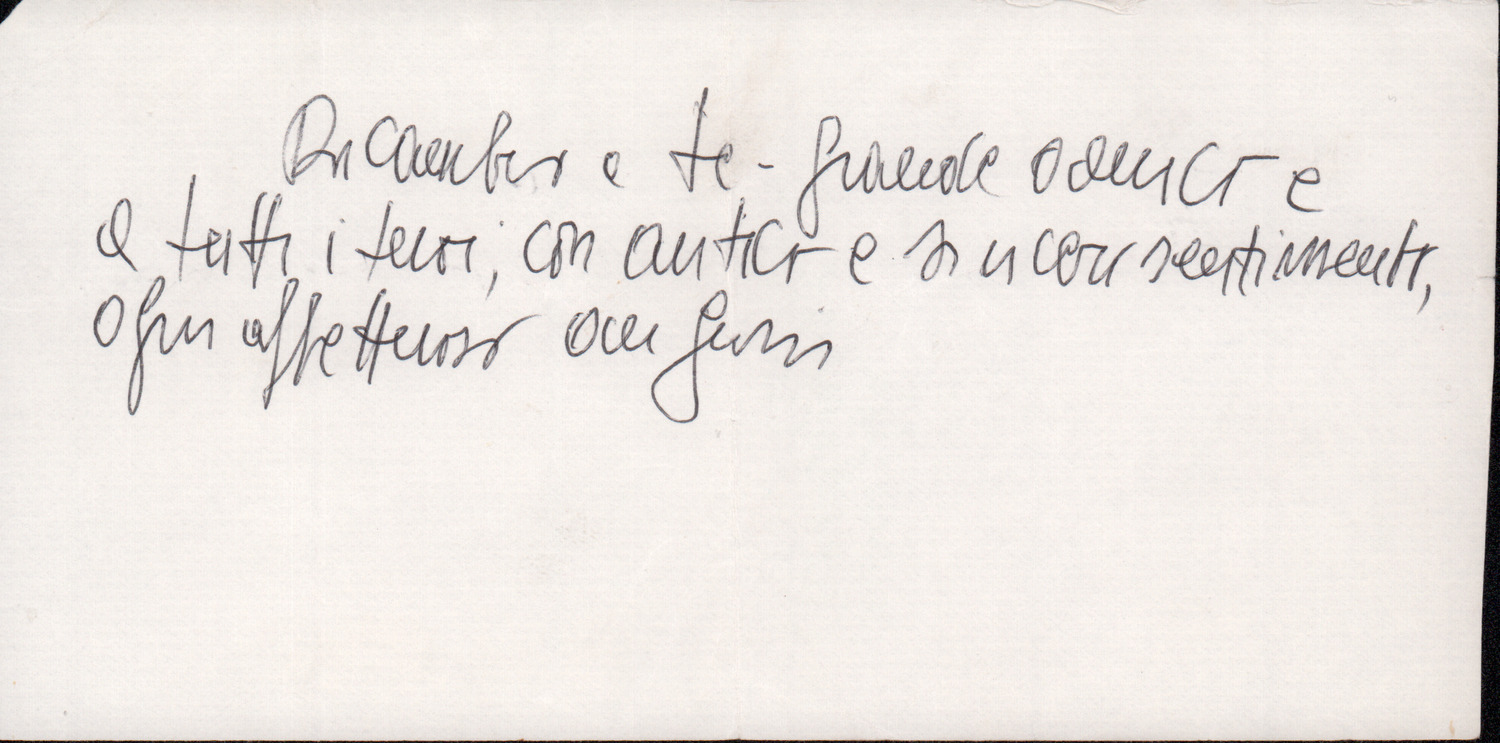 Ricambio a te - grande amico e
a tutti i tuoi, con antico e sincero sentimento,
ogni affettuoso augurio